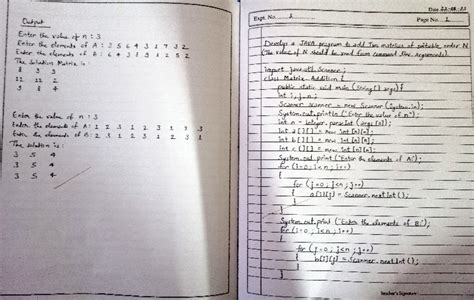 Output
Enter the value of n : 3
Enter the elements of A : 2 5 6 4 3 1 7 3 2
Enter the elements of B : 6 4 3 1 3 1 2 5 2
The Solution Matrix is :
8 3 3
11 11 2
9 8 4
Enter the value of n : 3
Enter the elements of A : 1 2 3 1 2 3 1 3
Enter the elements of B : 2 3 1 2 3 1 2 3 1
The Solution is :
3 5 4
3 5 4
3 5 4
Date
Expt. No. 1
Page No. 1
Develop a JAVA program to add Two matrices of suitable order N
(The value of N should be read from command line arguments).
import java.util.Scanner;
class Matrix Addition {
public static void main (String[] args) {
int i, j, n;
Scanner scanner = new Scanner (System.in);
System.out.println ("Enter the value of n");
int n = Integer.parseInt (args[0]);
int a[][] = new int [n][n];
int b[][] = new int [n][n];
int c[][] = new int [n][n];
System.out.print ("Enter the elements of A:");
for (i=0; i<n; i++)
{
for (j=0; j<n; j++)
{
a[i][j] = Scanner.nextInt();
}
}
System.out.print ("Enter the elements of B:");
for (i=0; i<n; i++)
{
for (j=0; j<n; j++)
{
b[i][j] = Scanner.nextInt();
}
}
Teacher's Signature